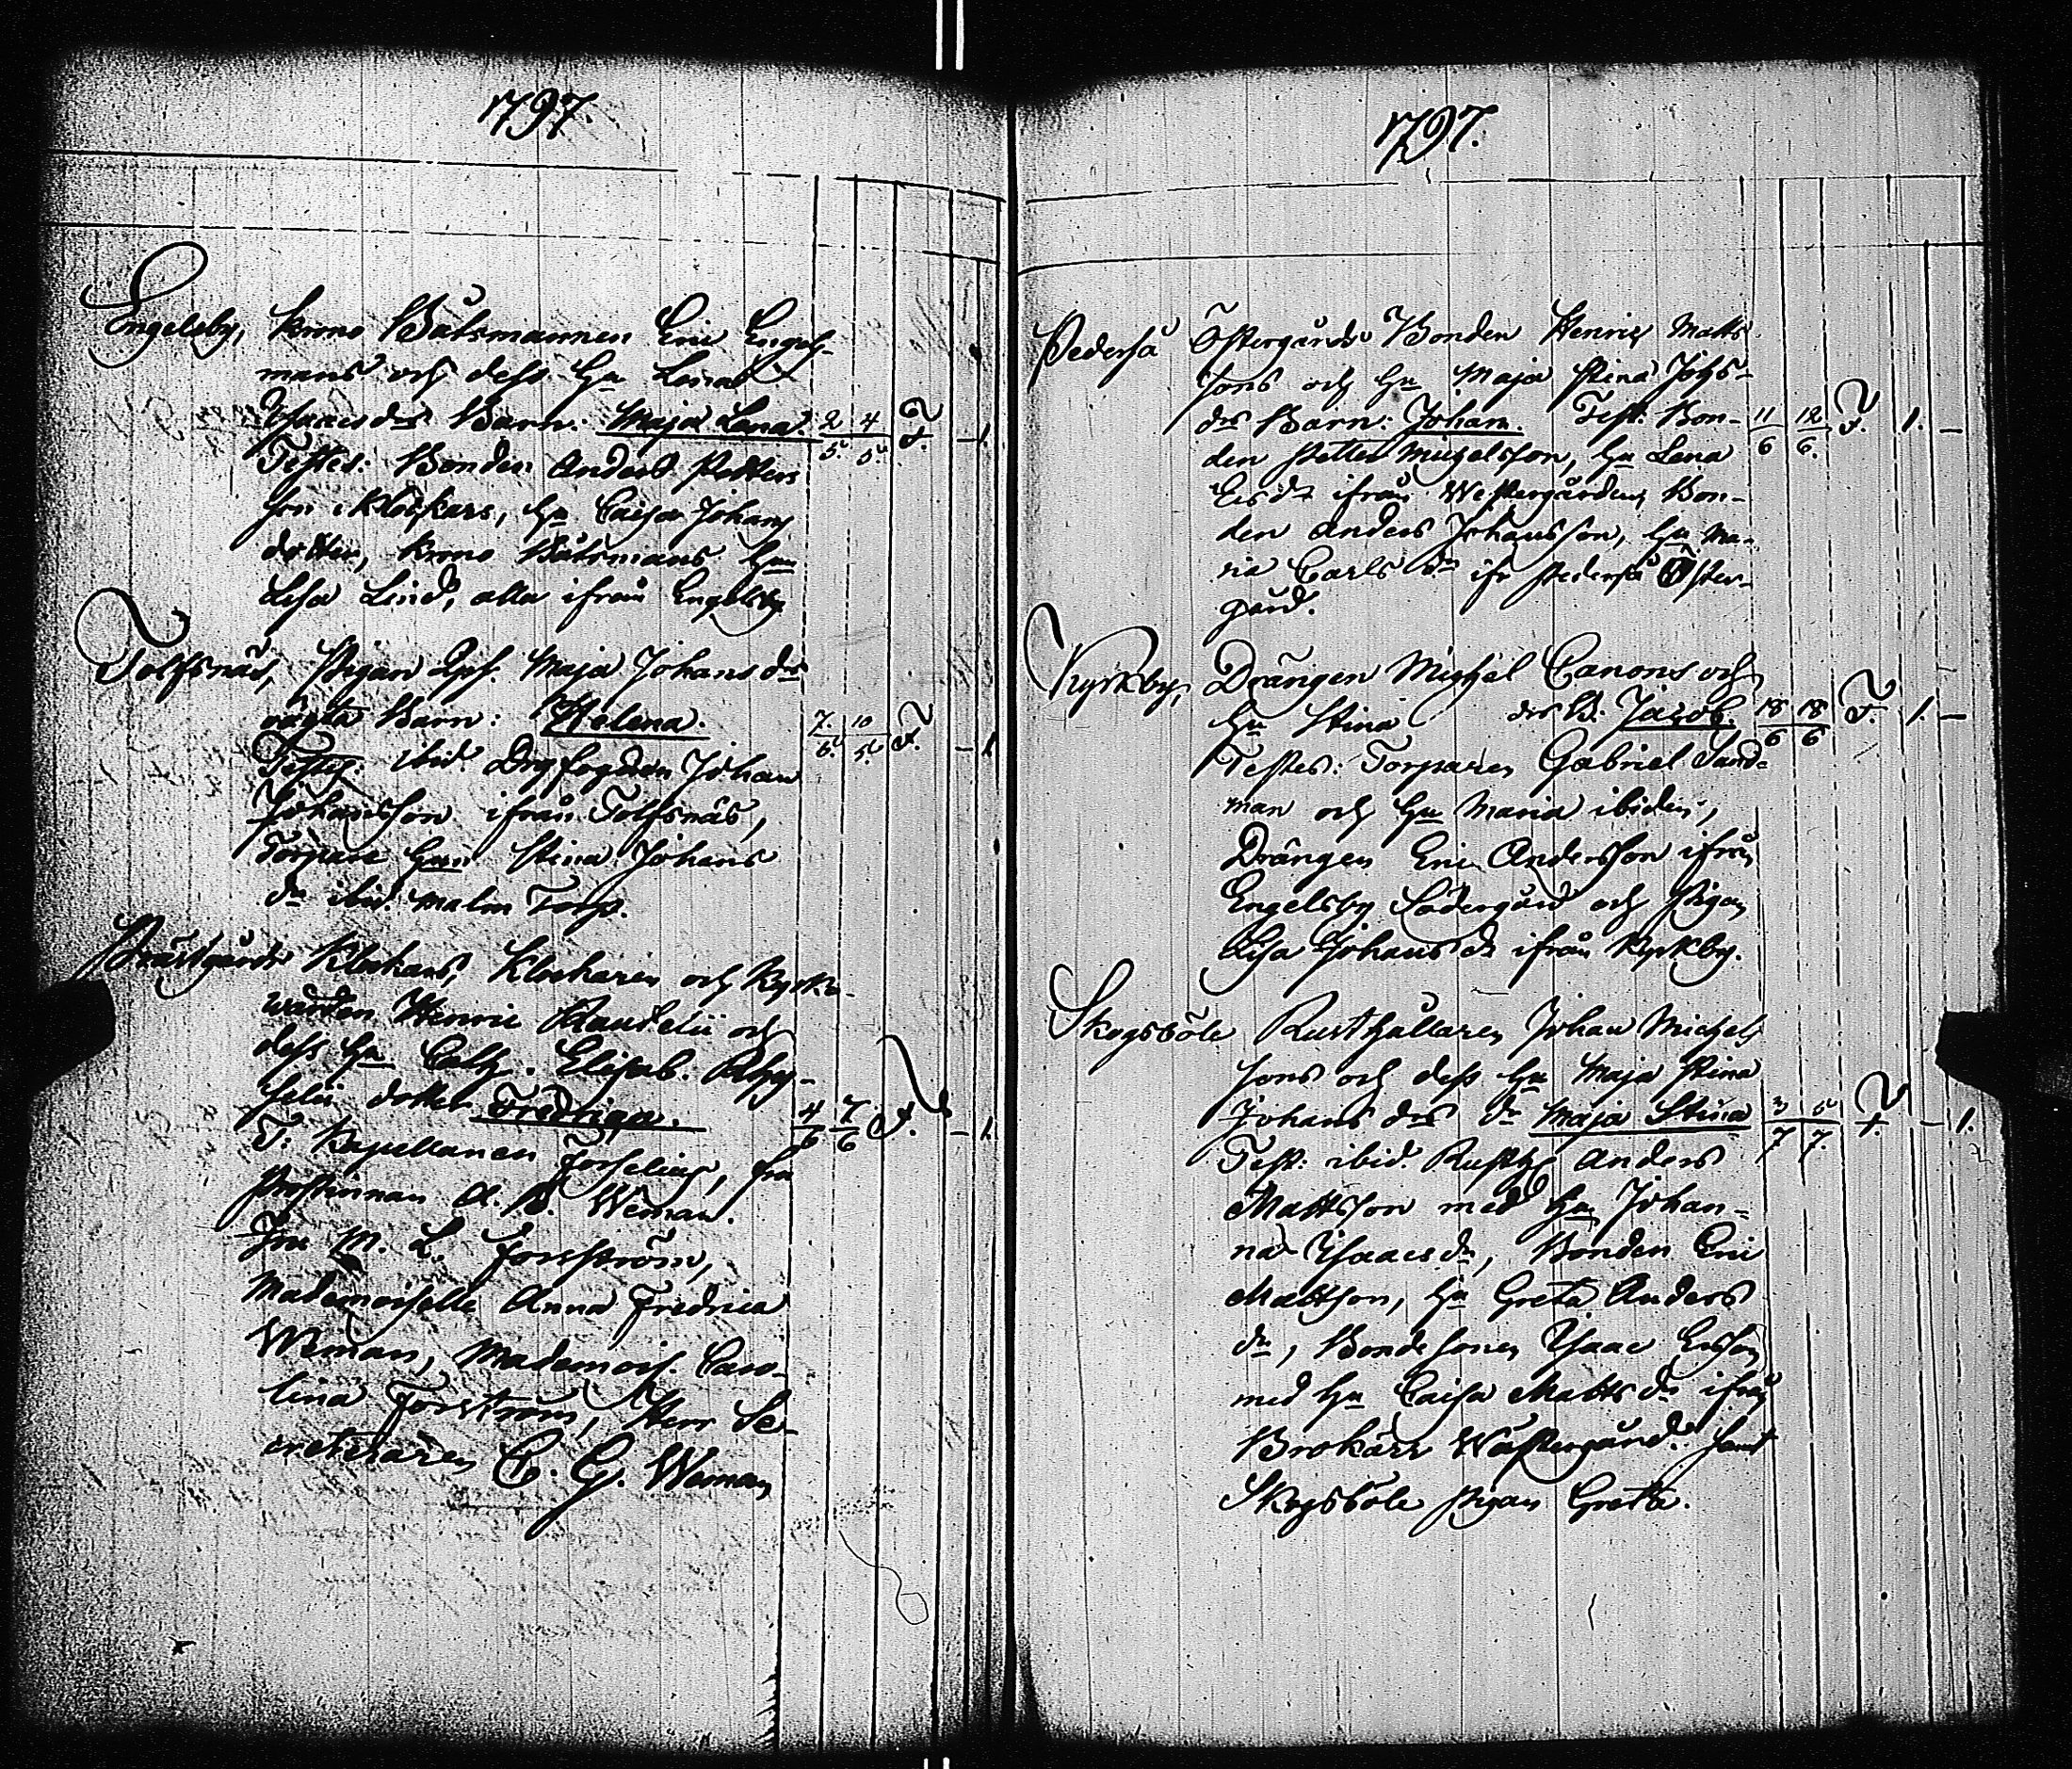 1797.
Engelsby, Krono Båtsmannen Eric Engel-
mans och dess Hu Lena
Isaacsdrs Barn: Maja Lena. 2/5 4/5 F. – 1.
Testes: Bonden Anders Petters
son i Klockars, Hu Caisa Johans
dotter, Krono Båtsmans Hun
Lisa Lind, alla ifrån Engelsby
Tolfsnäs, Pigan Maja Johans dr
oägta Barn: Helena. 7/6 10/5 F. – 1
Testes: ibid. Johan
Johansson ifrån Tolfsnäs,
Torpare Hun Stina Johans
dr ibid. Malm Torp.
Prästgårds Klockars, Klockaren och Kyrko-
warden Henric och
dess Hu Cath. Elisab.
dotter Fredriqa. 4/6 7/6 F. – 1.
T: Kapellanen Forselius, fru
Prostinnan A. B. Weman.
Fru M. L. Forsström,
Mademoiselle Anna Fredrica
Weman, Mademois. Caro-
lina Forström, Herr Se-
creteraren C. G. Weman
1797.
Pederså Östergårds Bonden Henric Matts
sons och Hu Maja Stina Johs-
drs Barn: Johan. Test: Bon- 11/6 12/6. F. 1. –
den Petter Michelsson, Hu Lena
Ersdr ifrån Westergården, Bon-
den Anders Johansson, Hu Ma-
ria Carls dr ifr Pederså Öster-
gård.
Kyrkby, Drängen Michel Canons och
Hu Stina drs B. Jacob. 18/6 18/6 F. 1. –
Testes: Torparen Gabriel Sand-
man och Hu Maria ibidem,
Drängen Eric Andersson ifrån
Engelsby Södergård och Pigan
Lisa Johans dr ifrån Kyrkby.
Skogsböle Rusthållaren Johan Michels
sons och dess Hu Maja Stina
Johans drs dr Maja Stina 3/7 5/7. F. – 1.
Test: ibid. Rusth Anders
Mattsson med Hu Johan-
na Isaacs dr, Bonden Eric
Mattson, Hu Greta Anders
dr, Bonde sonen Isaac Ersson
med Hu Caisa Matts dr ifrån
Brokärr Wästergård. samt
Skogsböle pigan Greta.